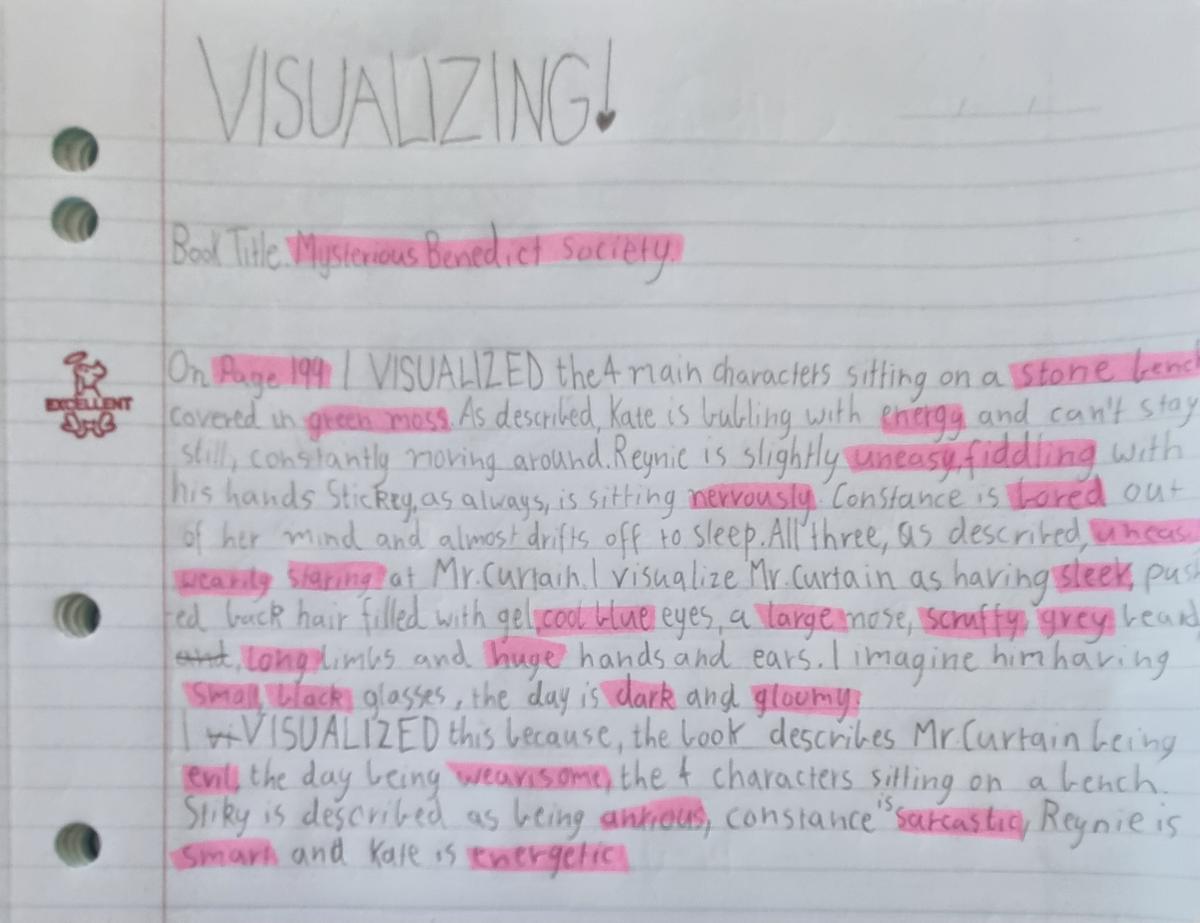 VISUALIZING!
Book Title. Mysterious Benedict Society.
EXCELLENT
On Page 199 I VISUALIZED the 4 main characters sitting on a stone bench
covered in green moss. As described, Kate is bubling with energy and can't stay
still, constantly moving around. Reynie is slightly uneasy, fiddling with
his hands Stickey, as always, is sitting nervously. Constance is bored out
of her mind and almost drifts off to sleep. All three, as described, uneas
wearily staring at Mr. Curtain. I visualize Mr. Curtain as having sleek, pus
ed back hair filled with gel, cool blue eyes, a large nose, scruffy, grey beard
and, long limbs and huge hands and ears. I imagine him having
small, black glasses, the day is dark and gloomy.
I VISUALIZED this because, the book describes Mr. Curtain being
evil, the day being wearisome, the 4 characters sitting on a bench.
Stiky is described as being anxious, constance is sarcastic, Reynie is
smart and Kate is energetic